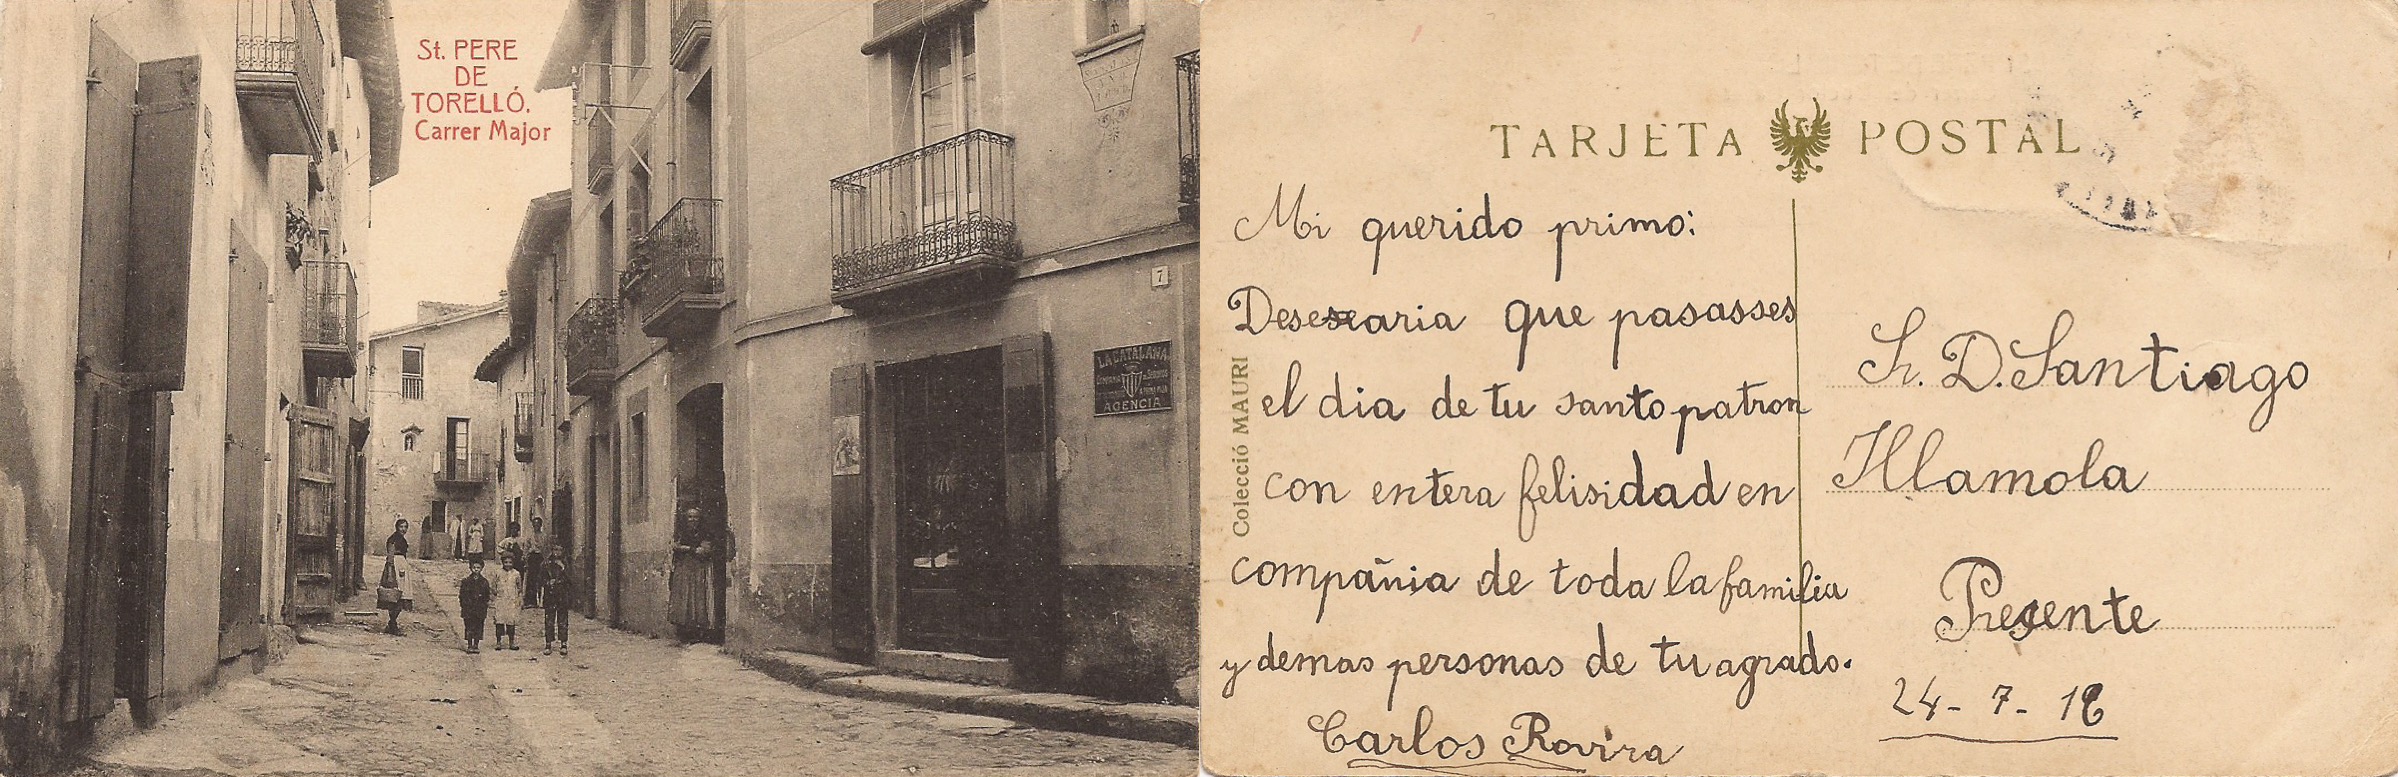 St. PERE
DE
TORELLÓ.
Carrer Major
7
LA CATALANA
AGENCIA
TARJETA POSTAL
Colecció MAURI
Mi querido primo:
Desearia que pasasses
el dia de tu santo patron
con entera felisidad en
compañia de toda la familia
y demas personas de tu agrado.
Carlos Rovira
Sr. D. Santiago
Illamola
Presente
24-7-18